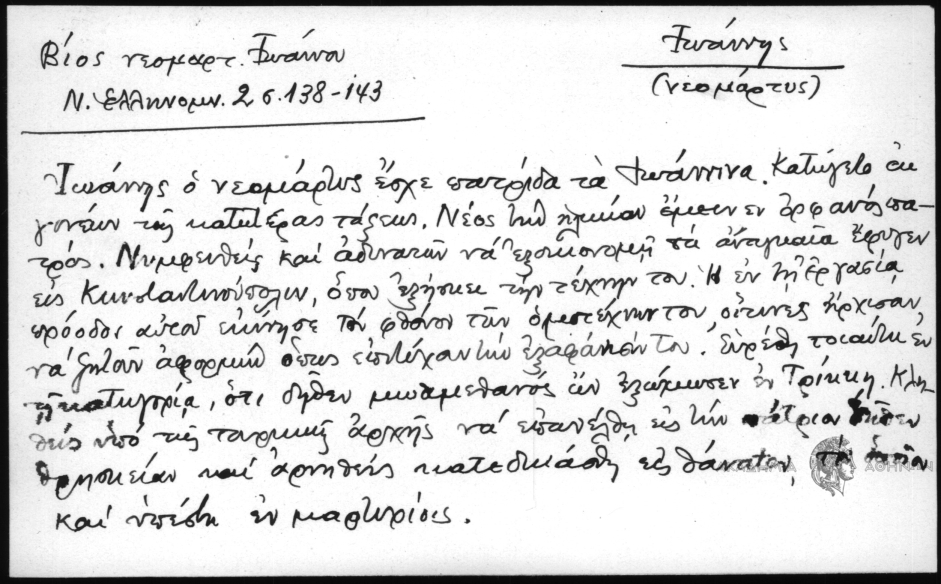 Βίος νεομαρτ. Ἰωάννου
Ν. Ἑλληνομν. 2 σ. 138-143
Ἰωάννης
(νεομάρτυς)
Ἰωάννης ὁ νεομάρτυς ἔσχε πατρίδα τὰ Ἰωάννινα. Κατήγετο ἐκ
γονέων τῆς κατωτέρας τάξεως. Νέος τὴν ἡλικίαν ἔμεινεν ὀρφανὸς πα-
τρός. Νυμφευθείς καί ἀδυνατῶν νά ἐξοικονομῇ τά ἀναγκαῖα ἔφυγεν
εἰς Κωνσταντινούπολιν, ὅπου ἐξήσκει τήν τέχνην του. Ἡ ἐν τῇ ἐργασίᾳ
πρόοδος αὐτοῦ ἐκίνησε τόν φθόνον τῶν ὁμοτέχνων του, οἵτινες ἤρχισαν
νά ζητοῦν ἀφορμήν ὅπως ἐπιτύχων τήν ἐξαφάνισίν του. Εὑρέθη τοιαύτη ἐν
τῇ κατηγορίᾳ, ὅτι δῆθεν μωαμεθανός ὤν ἐξώμωσεν ἐν Τρίκκῃ. Κλη-
θείς ὑπό τῆς τουρκικῆς ἀρχῆς νά ἐπανέλθῃ εἰς τήν πάτριον δῆθεν
θρησκείαν καί ἀρνηθείς κατεδικάσθη εἰς θάνατον, τόν ὁποῖον
καί ὑπέστη ἐν μαρτυρίοις.
ΑΘΗΝΩΝ